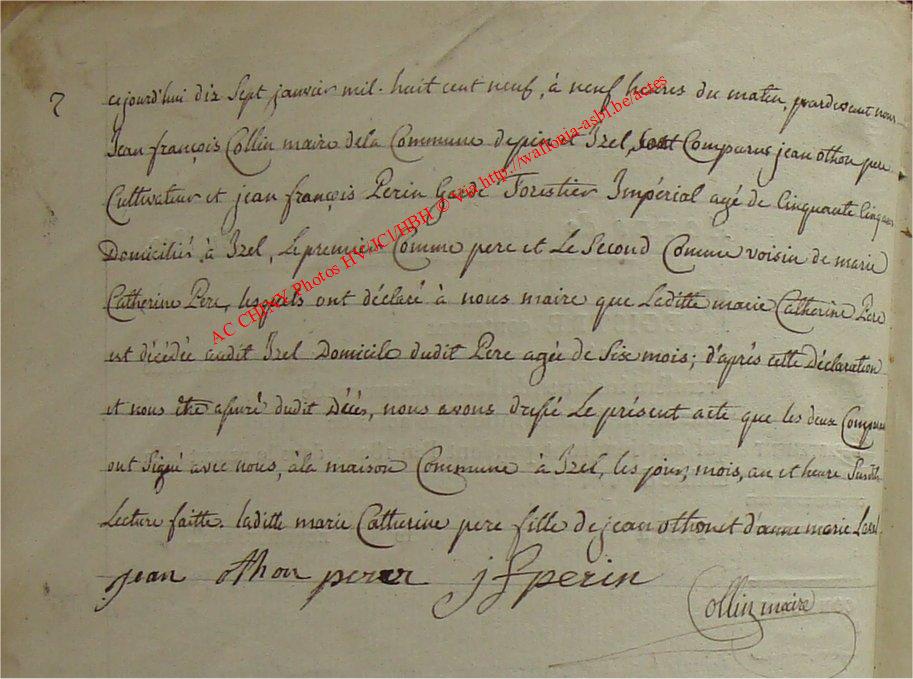 2 cejourd'hui dix Sept janvier mil. huit cent neuf, à neuf heures du matin, pardevant nous
Jean françois Collin maire dela Commune depin et Izel, Sont Comparus jean othon pere
Cultivateur et jean françois Perin Garde Forestier Impérial agé de Cinquante Cinq ans
Domiciliés à Izel, Le premier Comme pere et Le Second Comme voisin de marie
Catherine Pere, lesquels ont déclaré à nous maire que Laditte marie Catherine Pere
est décédée audit Izel Domicile dudit Pere agée de Six mois; d'aprés cette Déclaration
et nous être assuré dudit Décés, nous avons dressé Le présent acte que les deux Comparus
ont Signé avec nous, àla maison Commune à Izel, les jour, mois, an et heure Susdits
Lecture faitte. laditte marie Catherine pere fille de jean othon et d'anne marie
jean othon perer j f perin
Collin maire
AC CHINY Photos HV-JCl/HBH © via http://wallonia-asbl.be/actes